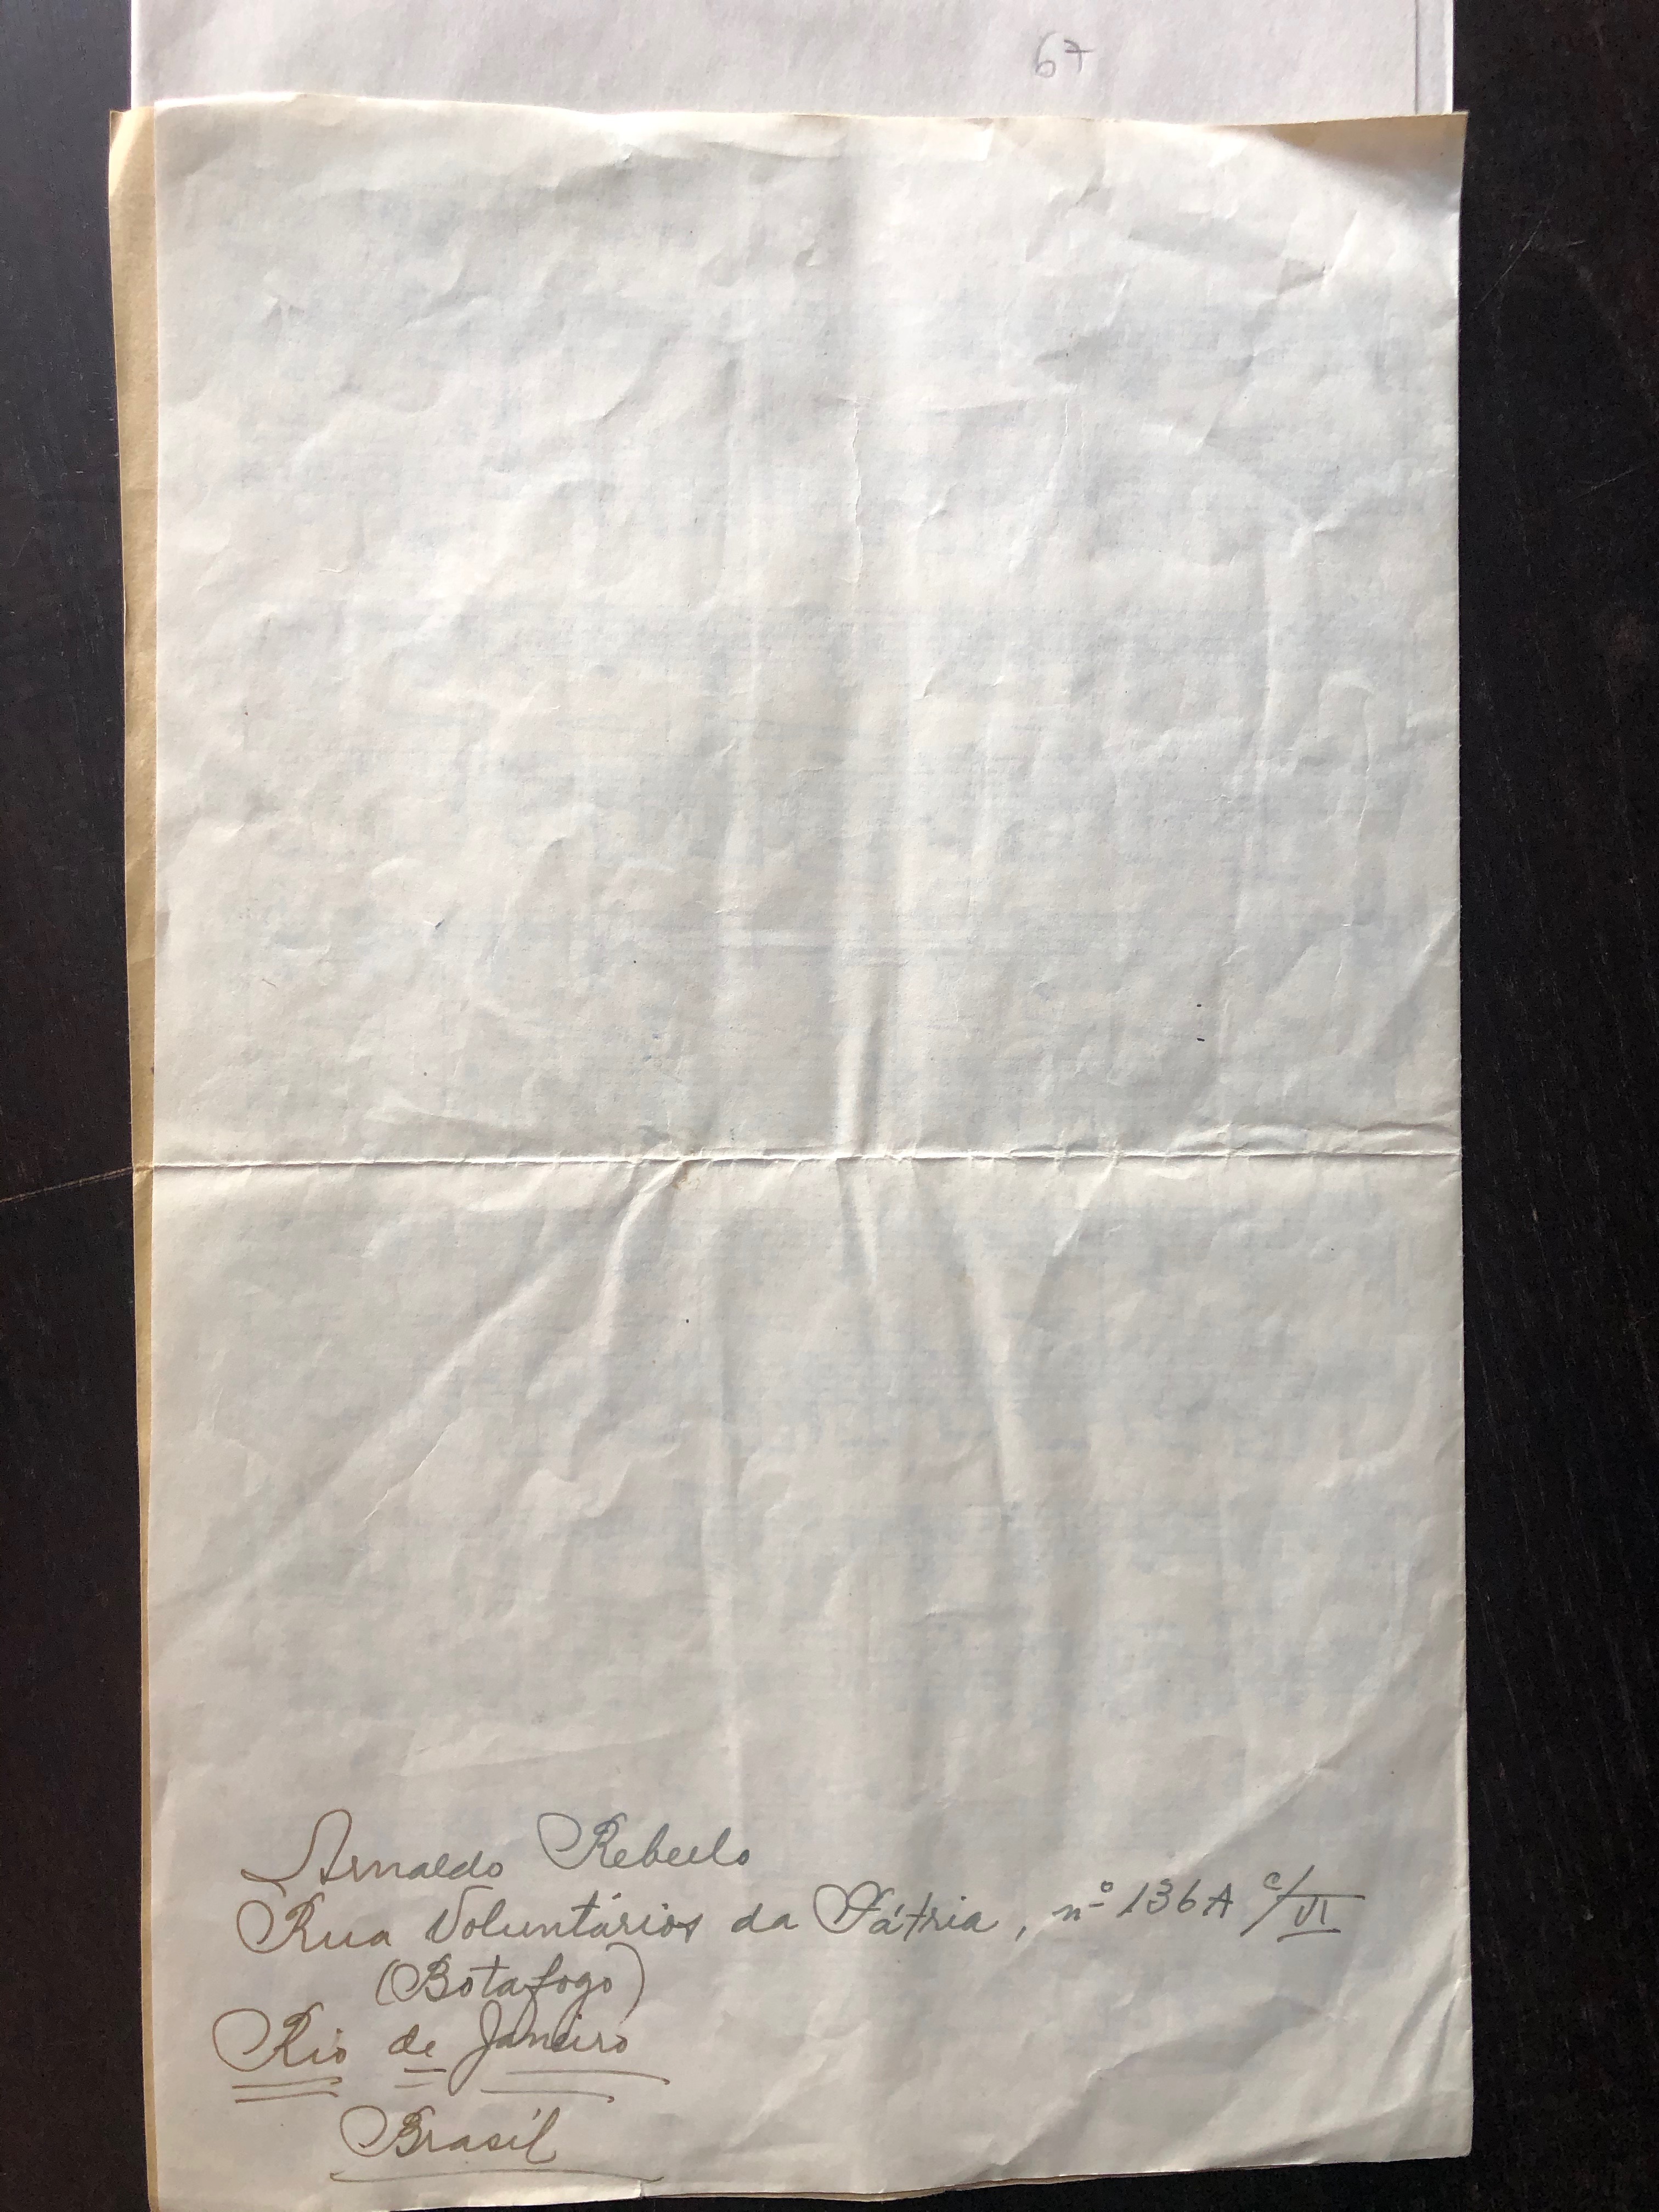 67
Arnaldo Rebello
Rua Voluntários da Pátria, nº 136A c/VI
(Botafogo)
Rio de Janeiro
Brasil